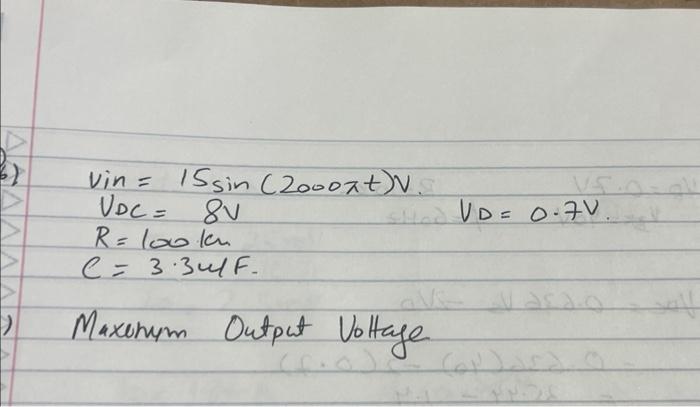 b)
Vin = 15 sin (2000πt)V.
VDC = 8V VD = 0.7V.
R = 100 kΩ
C = 3.3 uF.
) Maximum Output Voltage